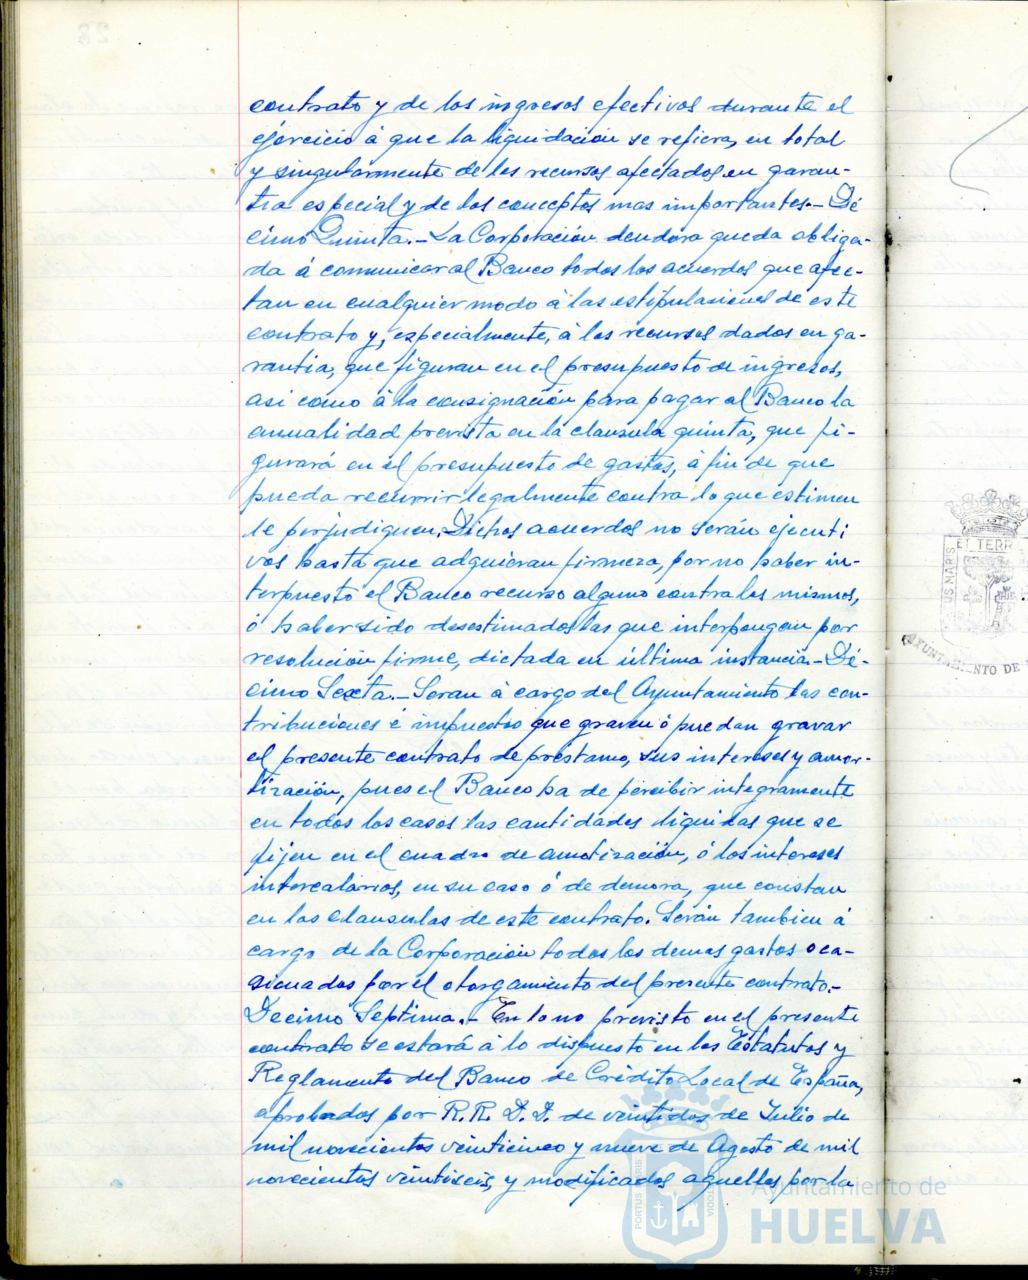 contrato y de los ingresos efectivos durante el
ejercicio á que la liquidación se refiera, en total
y singularmente de los recursos afectados en garan-
tia especial y de los conceptos mas importantes.- Dé
cimo Quinta.- La Corporación deudora queda obliga-
da á comunicar al Banco todos los acuerdos que afec-
tan en cualquier modo á las estipulaciones de este
contrato y, especialmente, á los recursos dados en ga-
rantia, que figuran en el presupuesto de ingresos,
asi como á la consignación para pagar al Banco la
anualidad prevista en la clausula quinta, que fi-
gurará en el presupuesto de gastos, á fin de que
pueda recurrir legalmente contra lo que estimen
le perjudiquen. Dichos acuerdos no serán ejecuti
vos hasta que adquieran firmeza, por no haber in-
terpuesto el Banco recurso alguno contra los mismos,
ó haber sido desestimados las que interpongan por
resolución firme, dictada en última instancia.- Dé-
cimo Sexta.- Seran á cargo del Ayuntamiento las con-
tribuciones é impuestos que graven ó puedan gravar
el presente contrato de préstamo, sus intereses y amor-
tización, pues el Banco ha de percibir integramente
en todos los casos las cantidades liquidas que se
fijen en el cuadro de amotización, ó los intereses
intercalarios, en su caso ó de demora, que constan
en las clausulas de este contrato. Serán tambien á
cargo de la Corporación todos los demas gastos oca-
sionados por el otorgamiento del presente contrato.-
Decimo Septima.- En lo no previsto en el presente
contrato se estará á lo dispuesto en los Estatutos y
Reglamento del Banco de Crédito Local de España,
aprobados por R.R. D.D. de veintidos de Julio de
mil novecientos veinticinco y nueve de Agosto de mil
novecientos veintiseis, y modificados aquellos por la
Ayuntamiento de
HUELVA